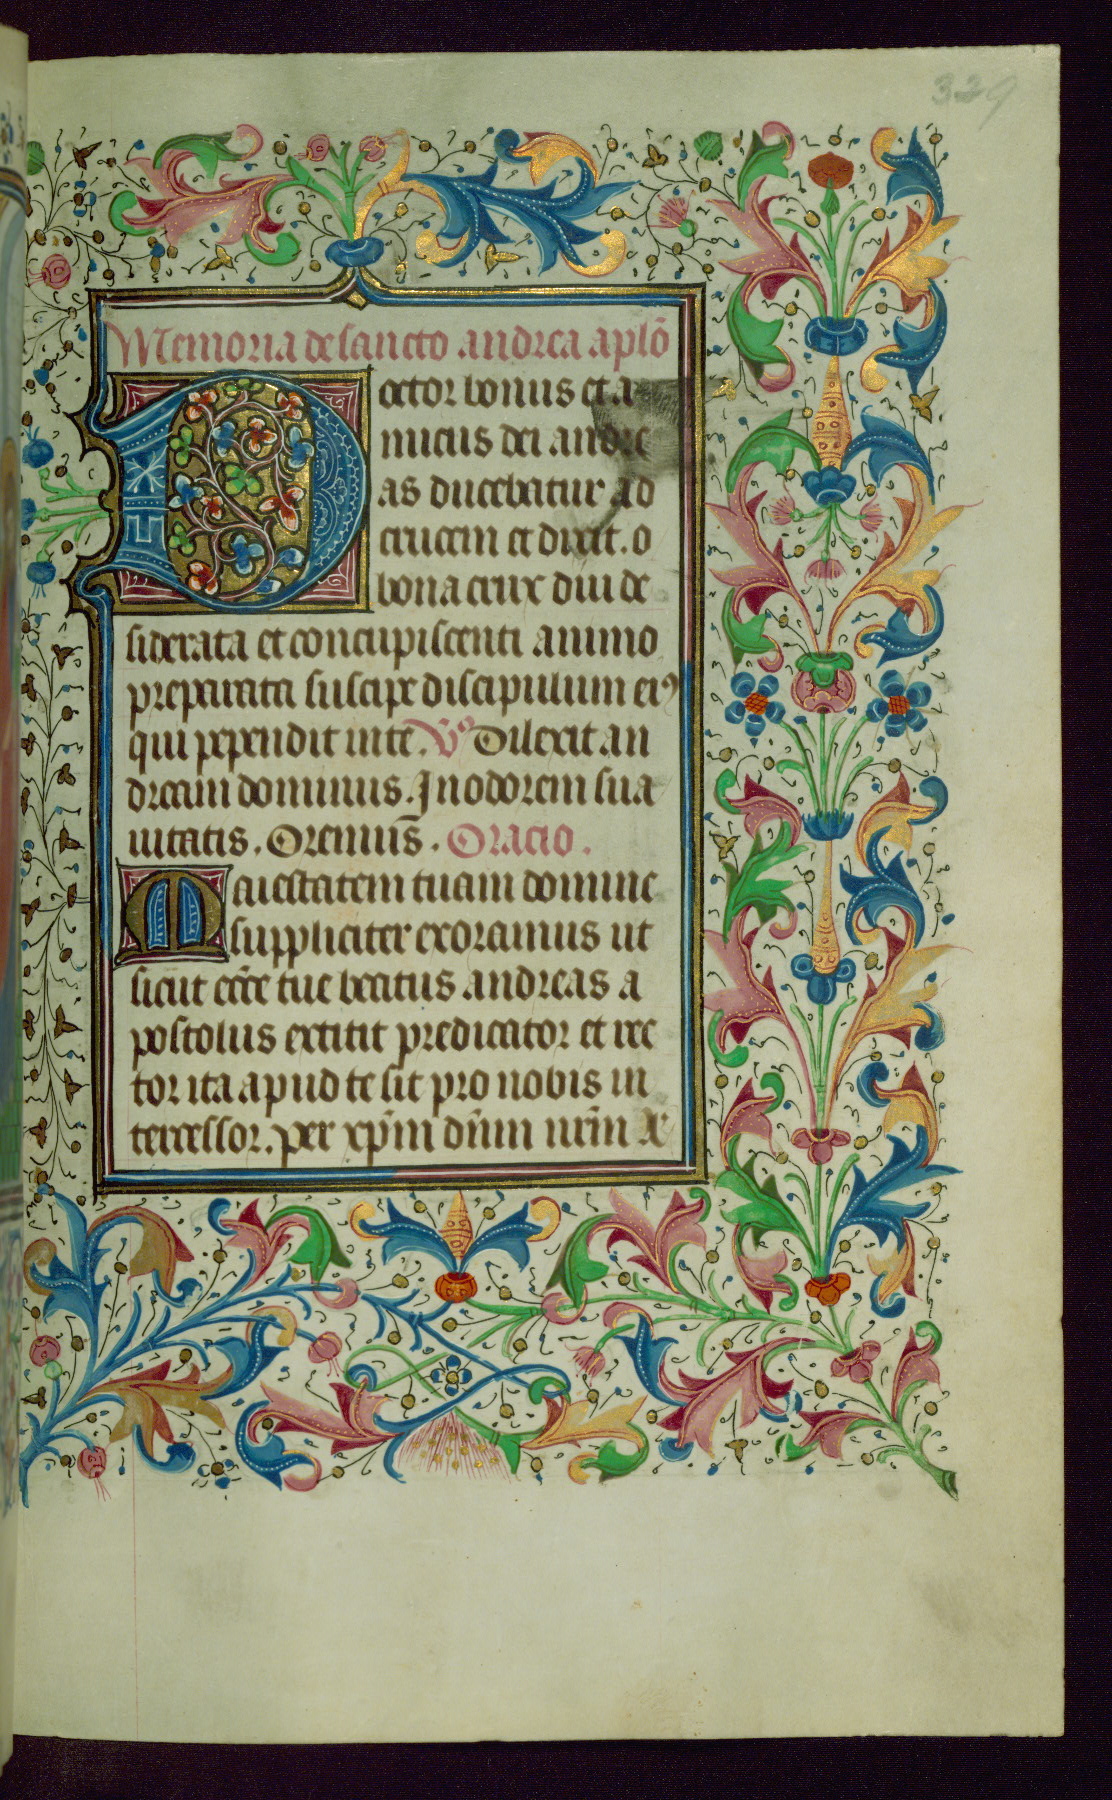 329
Memoria de sancto andrea aplō
Doctor bonus et a
micus dei andre
as ducebatur ad
crucem et dixit. O
bona crux diu de
siderata et concupiscenti animo
preparata suscipe discipulum eiꝰ
qui pependit in te. Vͦ Dilexit an
dream dominus. In odorem sua
uitatis. Oremus̄. Oracio.
Maiestatem tuam domine
suppliciter exoramus ut
sicut eccͤe tue beatus andreas a
postolus extitit predicator et rec
tor ita apud te sit pro nobis in
tercessor. per xp̄m dn̄m nr̄m